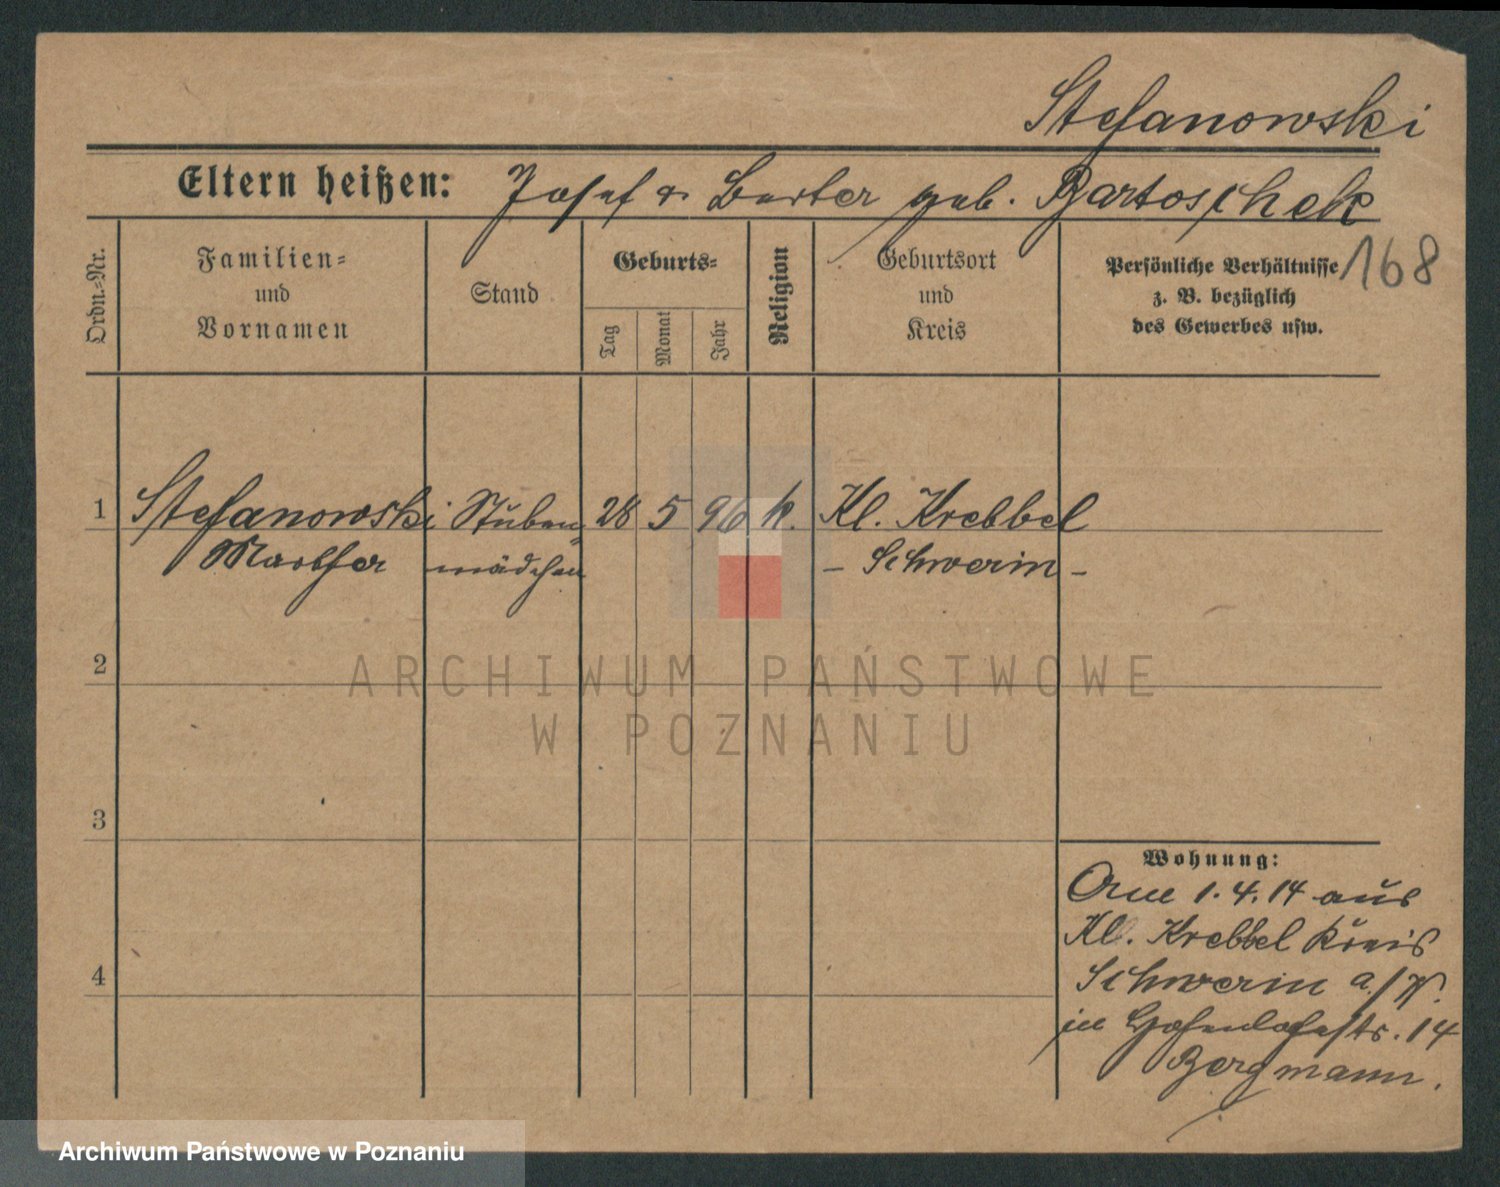 Stefanowski
Eltern heißen: Josef & geb. Bartoschek
168
Ordn.-Nr.
Familien-
und
Vornamen
Stand
Geburts-
Tag
Monat
Jahr
Religion
Geburtsort
und
Kreis
Persönliche Verhältnisse
z. B. bezüglich
des Gewerbes usw.
1 Stefanowski Stuben- 28 5 96 k. Kl. Krebbel
mädchen - Schwerin -
2
ARCHIWUM PAŃSTWOWE
W POZNANIU
3
Wohnung:
1.4.14 aus
Kl. Krebbel Kreis
4
Schwerin a/W.
in Hohenlohestr. 14
Bergmann.
Archiwum Państwowe w Poznaniu